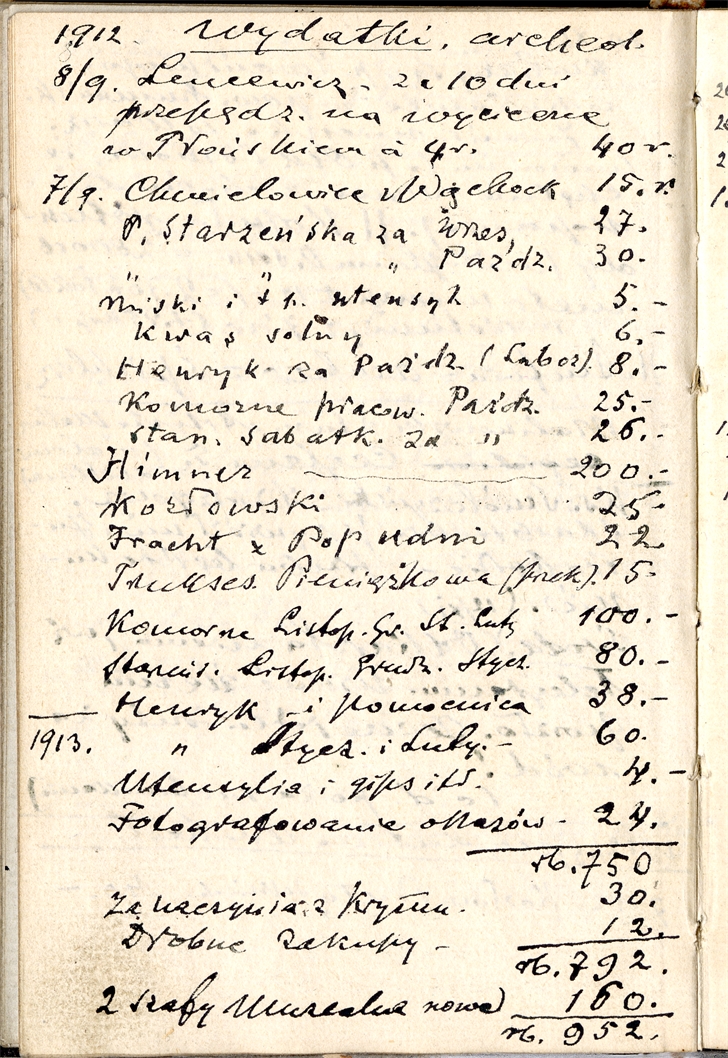 1912. Wydatki. archeol.
8/9. Lencewicz - za 10 dni
przepędz. na wycieczce
w Płońskiem à 4 r. 40 r.
7/9. Chmielowice Wąchock 15. r.
P. Starzeńska za Wrzes, 27.
" Paźdz. 30.
Miski i utensyl 5.-
Kwas solny 6.-
Henryk za Paźdz. (Labor). 8.-
Komorne pracow. Paźdz. 25.-
Stan. Sabatk. za " 26.-
Himner 200.-
Kozłowski 25-
Fracht z Popudni 22
Pieniążkowa 15-
Komorne Listop. Gr. St. Luty 100.-
Listop. Grudz. Stycz. 80.-
Henryk - i pomocnica 38.-
1913. " Stycz. i Luty.- 60.
Utensylia i gips itd. 4.-
Fotografowanie okazów - 24.
rb. 750
Za naczynia z Krymu. 30.
Drobne zakupy - 12.
rb. 792.
2 szafy Muzealne nowe) 160.
rb. 952.